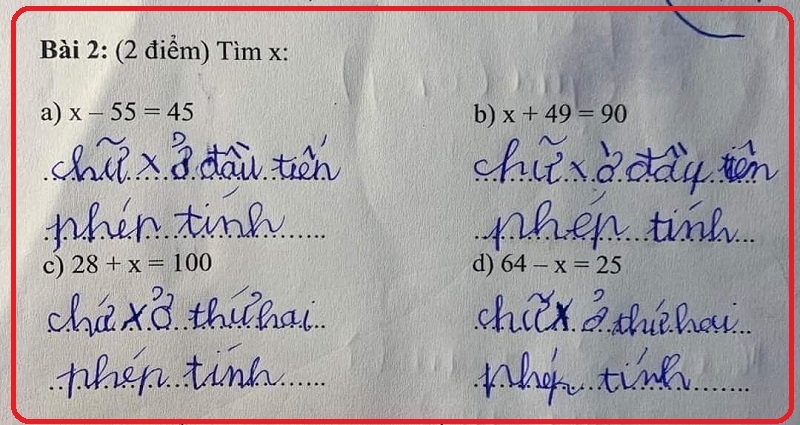 Bài 2: (2 điểm) Tìm x:
a) x – 55 = 45
chữ x ở đầu tiến
phép tính
b) x + 49 = 90
chữ x ở đầy tên
phép tính
c) 28 + x = 100
chứ x ở thứ hai
phép tính
d) 64 – x = 25
chữ x ở thứ hai
phép tính